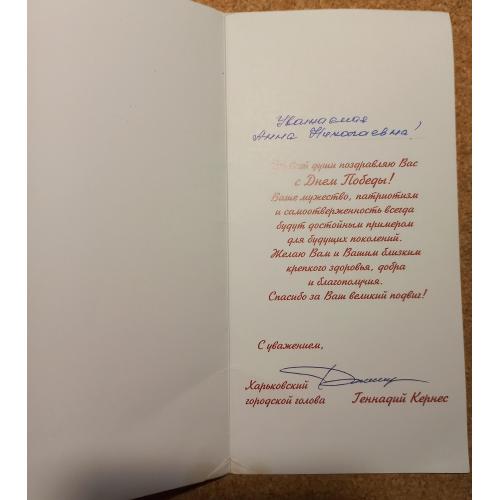 Уважаемая
Анна Николаевна!
От всей души поздравляю Вас
с Днем Победы!
Ваше мужество, патриотизм
и самоотверженность всегда
будут достойным примером
для будущих поколений.
Желаю Вам и Вашим близким
крепкого здоровья, добра
и благополучия.
Спасибо за Ваш великий подвиг!
С уважением,
Харьковский
городской голова
Геннадий Кернес